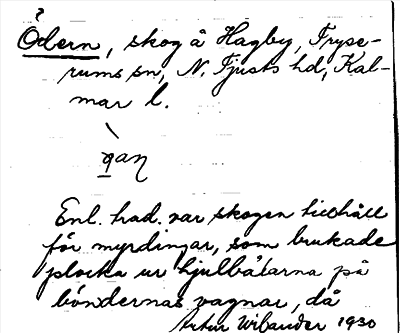 Ödern, skog å Hagby, Fryse-
rums sn, N. Tjusts hd, Kal-
mar l.
Enl. trad. var skogen tillhåll
för myrdingar, som brukade
plocka ur hjulbåtarna på
böndernas vagnar, då
Artur Wibander 1930